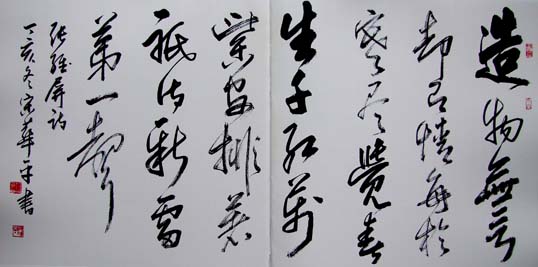 造物無言
却有情每於
寒尽覺春
生千红萬
紫安排著
祇待新雷
第一聲
张维屏诗
丁亥冬宋華平書